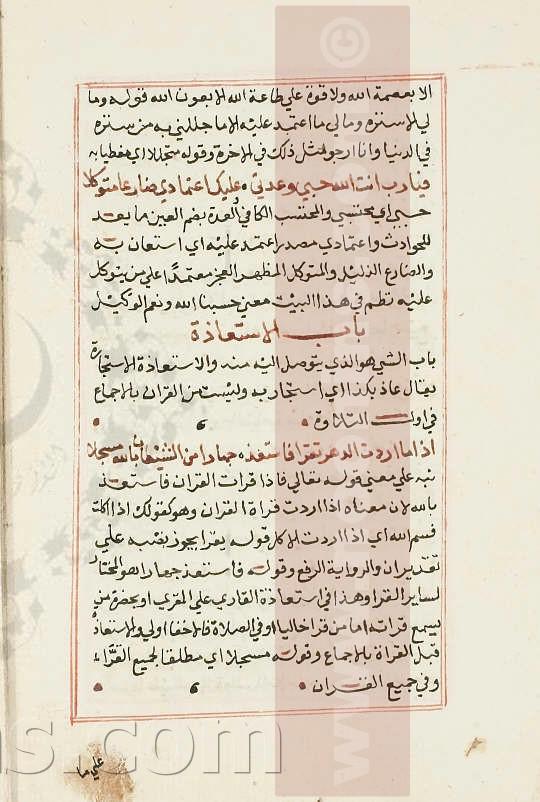 الا بعصمة الله ولا قوة علي طاعة الله الا بعون الله قوله وما
لي الا ستره ومالي ما اعتمد عليه الا ما جللني به من ستره
في الدنيا وانا ارجو لمثل ذلك في الاخرة وقوله متجللا اي مغطيا به
فيارب انت الله حسبي وعدتي عليك اعتمادي ضارعا متوكلا
حسبي اي محتسبي والمحتسب الكافي العدة بضم العين ما يعد
للحوادث واعتمادي مصدر اعتمد عليه اي استعان به
والضارع الذليل والمتوكل المظهر العجز معتمدا علي من يتوكل
عليه نظم في هذا البيت معني حسبنا الله ونعم الوكيل
باب الاستعاذة
باب الشي هو الذي يتوصل اليه منه والاستعاذة الاستجارة
يقال عاذ بكذا اي استجار به وليست من القران بالاجماع
في اول التلاوة
اذا ما اردت الدهر تقرا فاستعذ جهارا من الشيطان بالله مسجلا
نبه علي معني قوله تعالي فاذا قرات القران فاستعذ
بالله لان معناه اذا اردت قراة القران وهو كقولك اذا اكلت
فسم الله اي اذا اردت الاكل قوله يقرا يجوز نصبه علي
تقدير ان والرواية الرفع وقوله فاستعذ جهارا هو المختار
لساير القرا وهذا في استعاذة القاري علي المقري او بحضرة من
يسمع قراته اما من قرا خاليا او في الصلاة فالاخفا اولي والاستعاذة
قبل القراة بالاجماع وقوله مسجلا اي مطلقا لجميع القراء
وفي جميع القران
علي ما
www.
ns.com